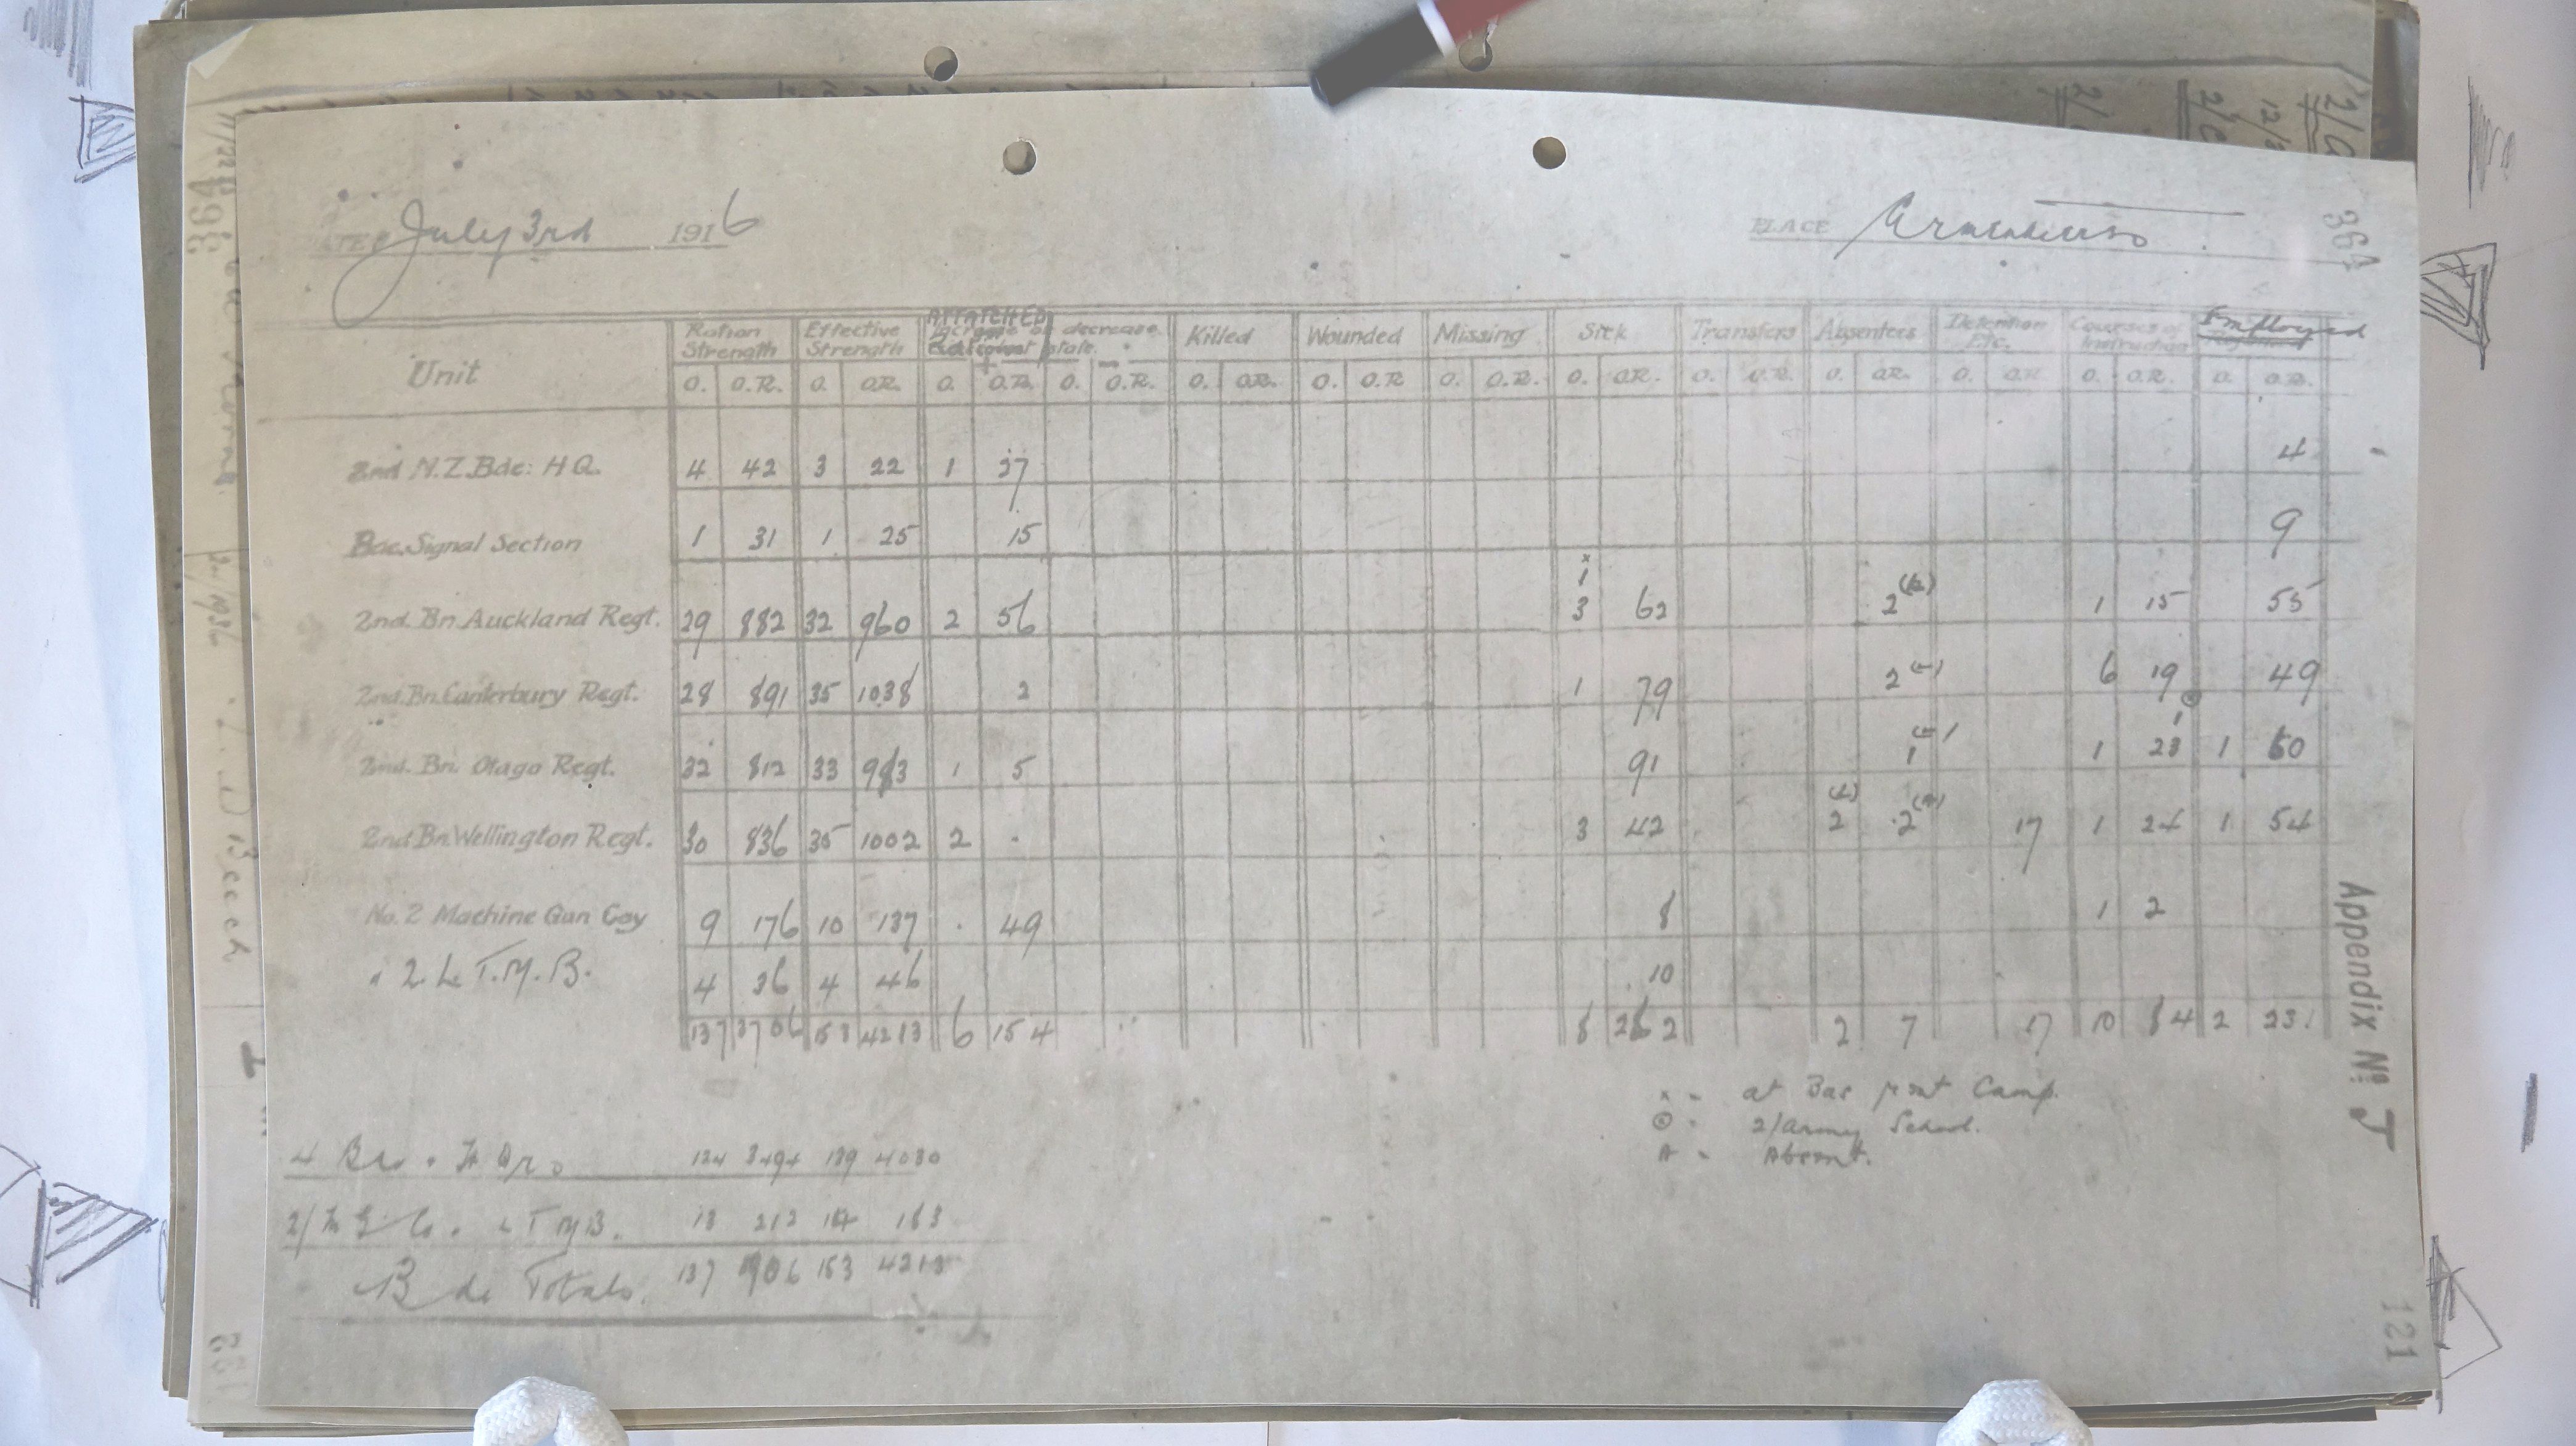 364
DATE July 3rd 1916
PLACE Armentieres
Unit
Ration Strength Effective Strength ATTATCHED Increase or decrease state. Killed Wounded Missing Sick Transfers Absentees Detention Etc. Courses of Instruction Employed
+ -
O. O.R. O. O.R. O. O.R. O. O.R. O. O.R. O. O.R. O. O.R. O. O.R. O. O.R. O. O.R. O. O.R. O. O.R. O. O.R.
2nd N.Z. Bde: H.Q. 4 42 3 22 1 27 4
Bde. Signal Section 1 31 1 25 15 9
x
1
2nd. Bn. Auckland Regt. 29 882 32 960 2 56 3 62 2 1 15 55
2nd. Bn. Canterbury Regt. 28 891 35 1038 2 1 79 2 6 19 49
1 ⊙
2nd. Bn. Otago Regt. 32 812 33 983 1 5 91 1 1 23 1 60
2nd Bn. Wellington Regt. 30 836 35 1002 2 . 3 42 2 2 17 1 24 1 54
No. 2 Machine Gun Coy 9 176 10 137 . 49 8 1 2
" 2. L. T. M. B. 4 36 4 46 10
137 3706 153 4213 6 154 8 262 2 7 17 10 84 2 231
x - at Bde Camp.
⊙ - 2/Army School.
A - Absent.
4 Bns. H Qrs 124 3494 139 4030
2/M G Co. L T M B. 13 212 14 183
Bde Totals. 137 153 4213
Appendix No. J
121
364